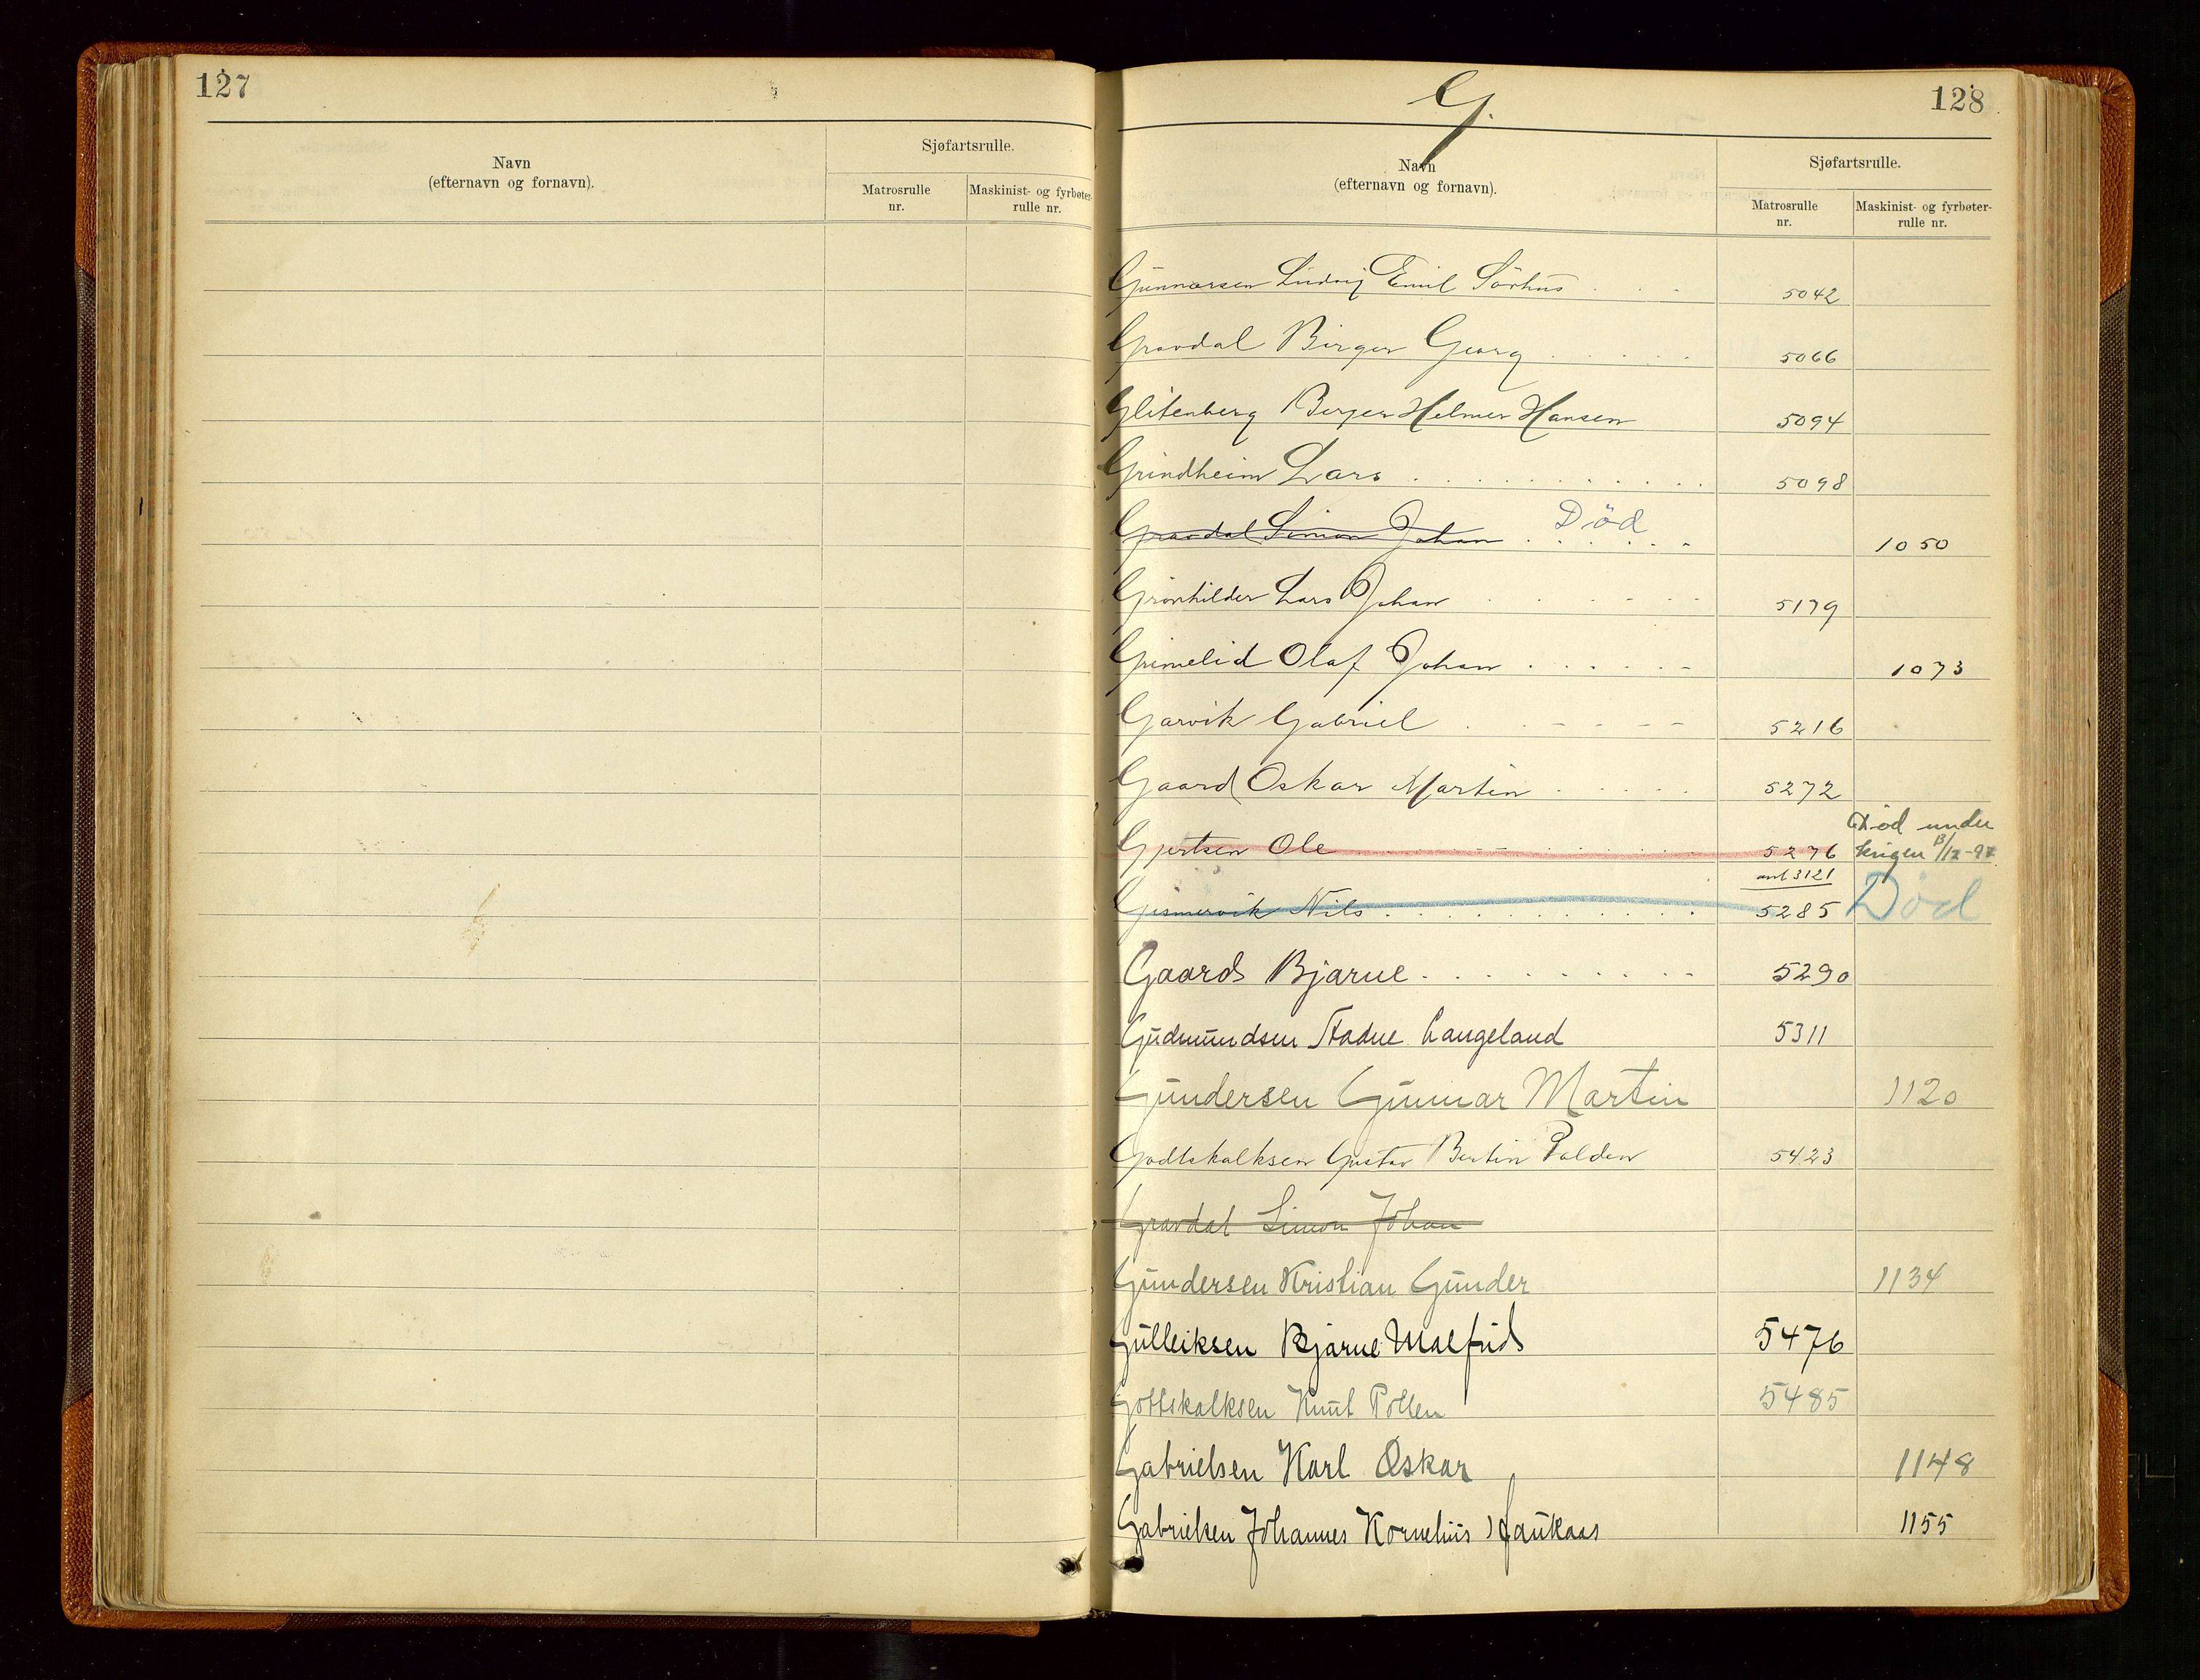 127
Navn
(efternavn og fornavn).
Sjøfartsrulle.
Matrosrulle
nr.
Maskinist- og fyrbøter-
rulle nr.
G.
128
Navn
(efternavn og fornavn).
Sjøfartsrulle.
Matrosrulle
nr.
Maskinist- og fyrbøter-
rulle nr.
Gunnarsen Ludvig Emil Sörhus . . . 5042
Gravdal Birger Georg . . . . . 5066
Glitenberg Birger Helmer Hansen 5094
Grindheim Lars . . . . . . . . . . . 5098
Gravdal Simon Johan . . . . . . Död 1050
Grönhilder Lars Johan . . . . . 5179
Grimelid Olaf Johan . . . . . . 1073
Garvik Gabriel . . - - - - 5216
Gaard Oskar Martin . . . . . 5272
Gjertsen Ole . . . . . . . . 5276 Död under
krigen 13/12-97
anl 3121
Gismervik Nils . . . . . . . . . 5285 Död
Gaards Bjarne . . . . . . . . . . 5290
Gudmundsen Stadne Langeland 5311
Gundersen Gunnar Martin 1120
Godtskalksen Gustav Bertin Polden 5423
Gravdal Simon Johan
Gundersen Kristian Gunder 1134
Gulleiksen Bjarne Malfrid 5476
Gottskalksen Knut Pollen 5485
Gabrielsen Karl Oskar 1148
Gabrielsen Johannes Kornelius Haukaas 1155